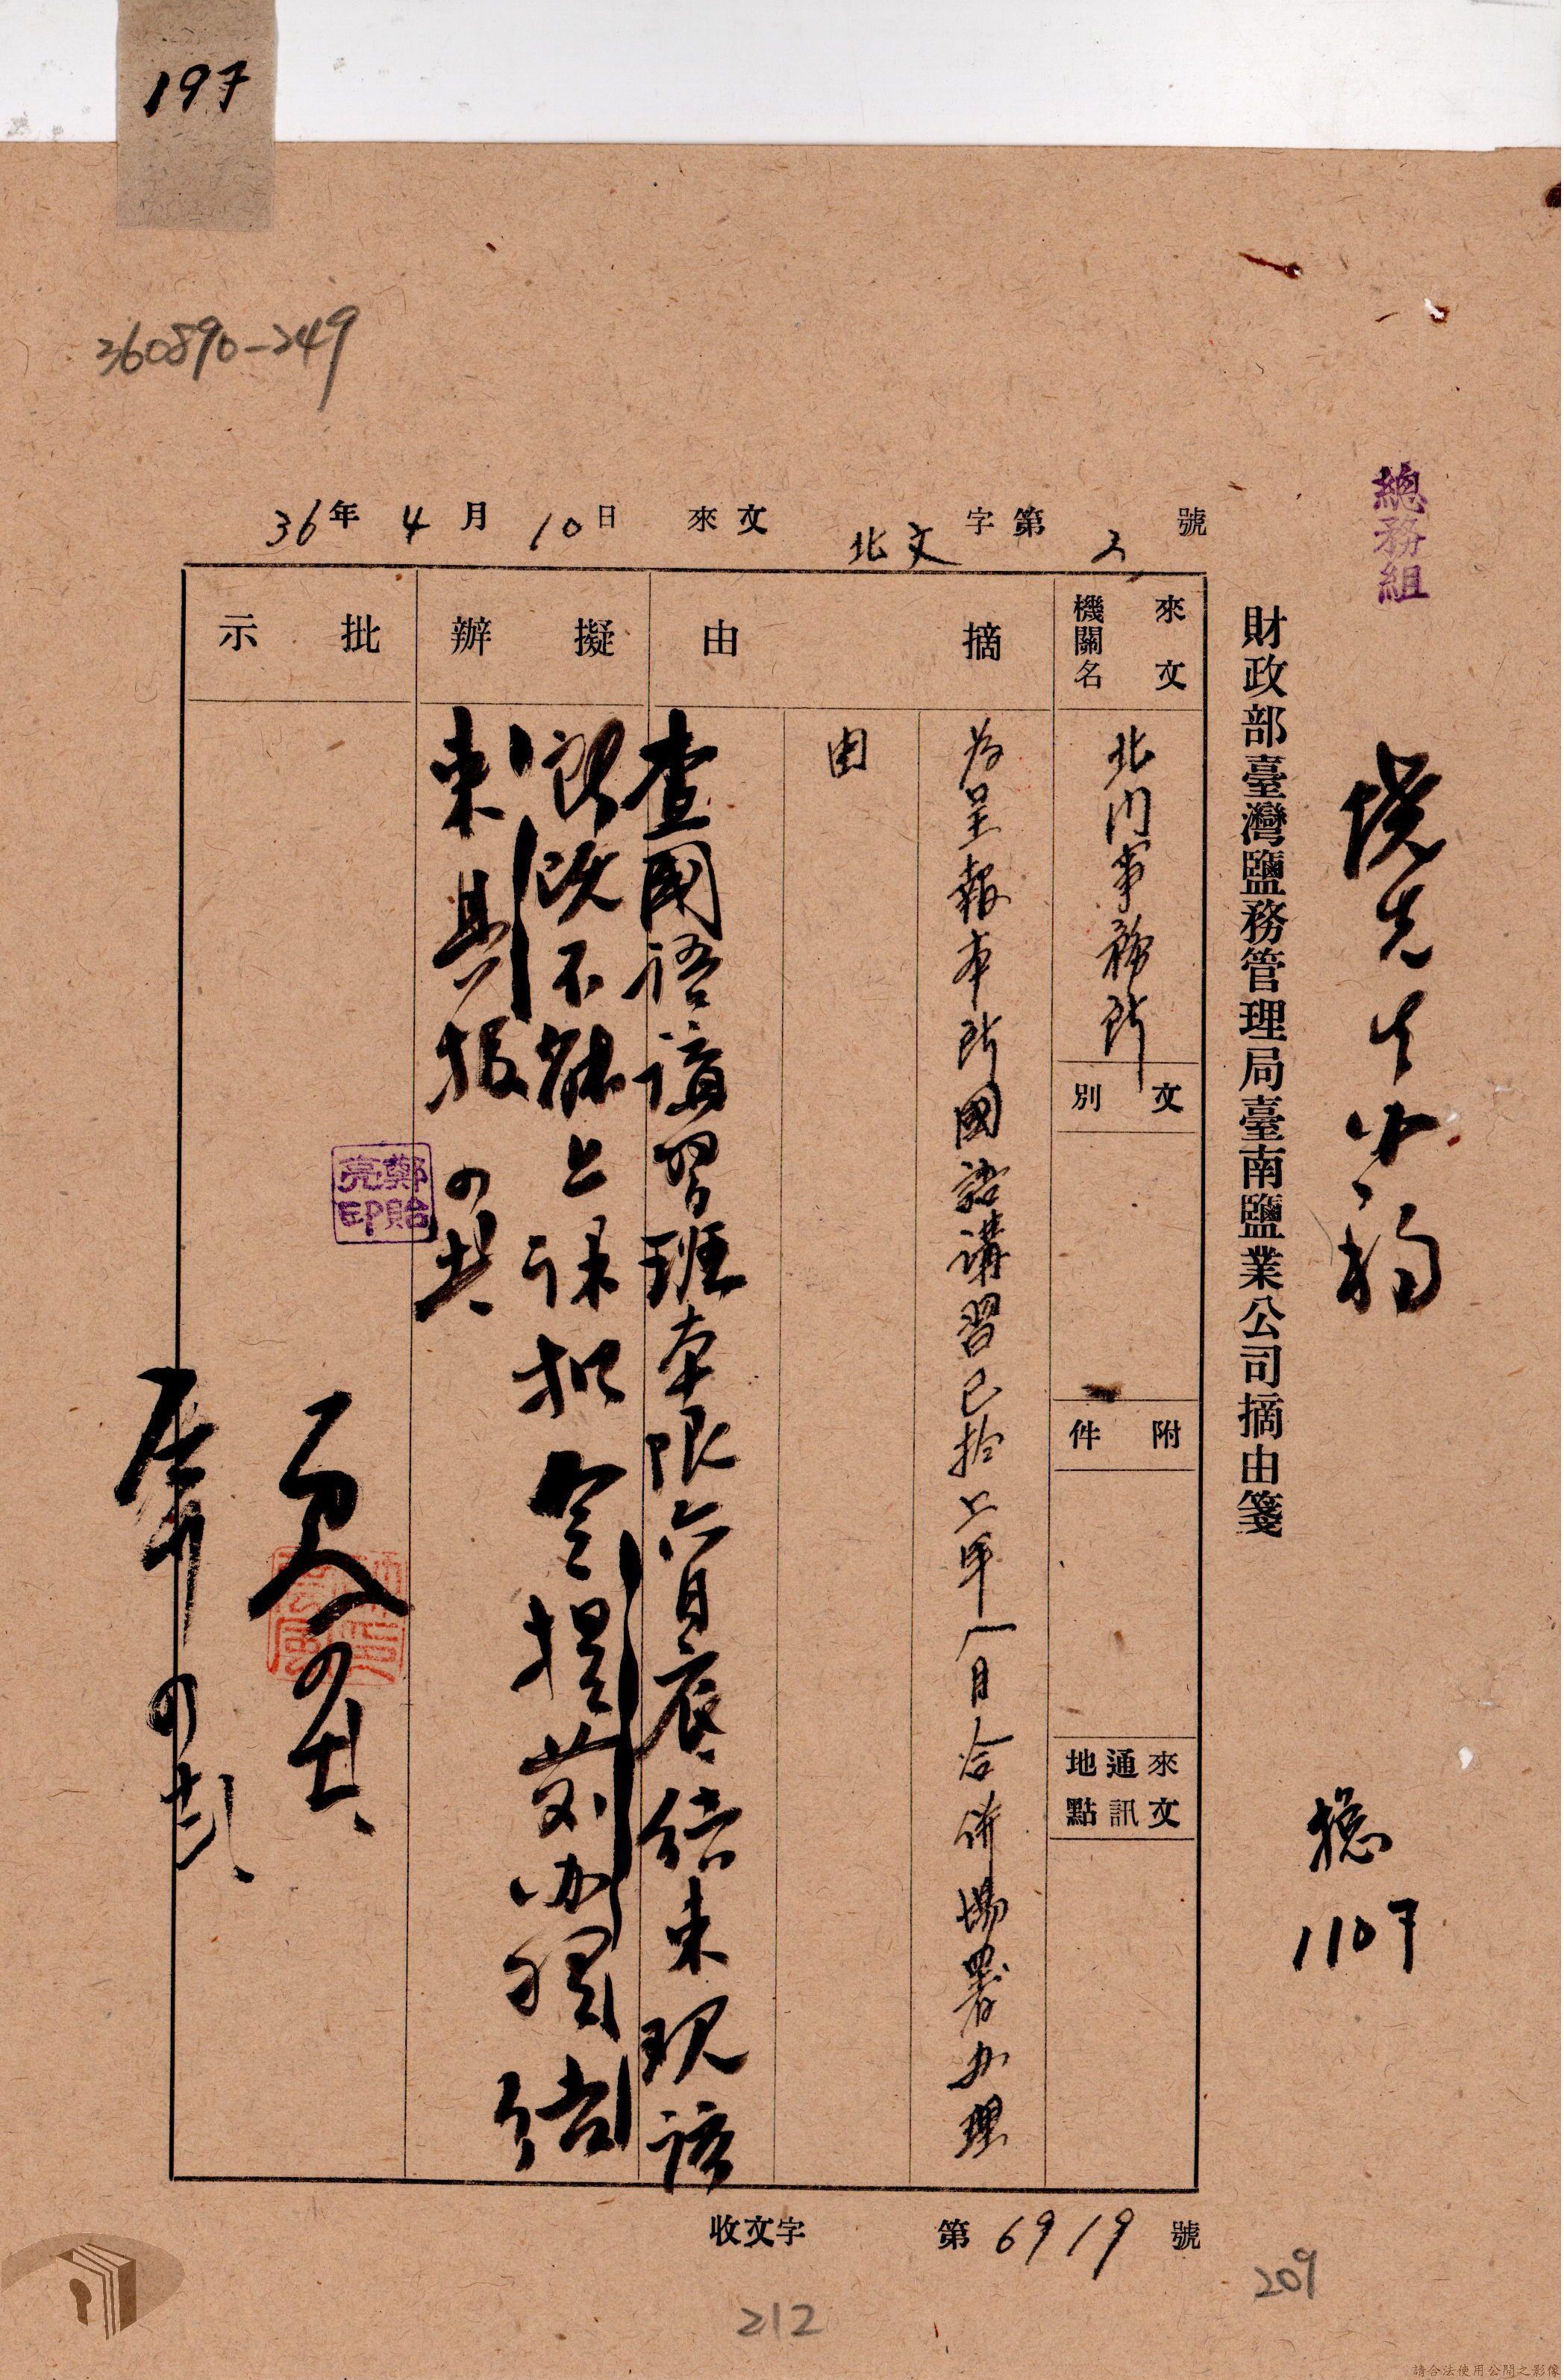 197
360890-249
總務組
財政部臺灣鹽務管理局臺南鹽業公司摘由箋
總
1107
36年4月10日 來文 北文字第2號
來文機關名
北門事務所
文別
附件
來文通訊地點
摘由
為呈報本所國語講習已於上年一月合併場署办理
由
擬辦
查國語講習班本限六月底結束現該
所既不能上課擬令提前办理結
束具报
鄭貽亮印
批示
收文字 第6919號
209
212
請合法使用公開之影像